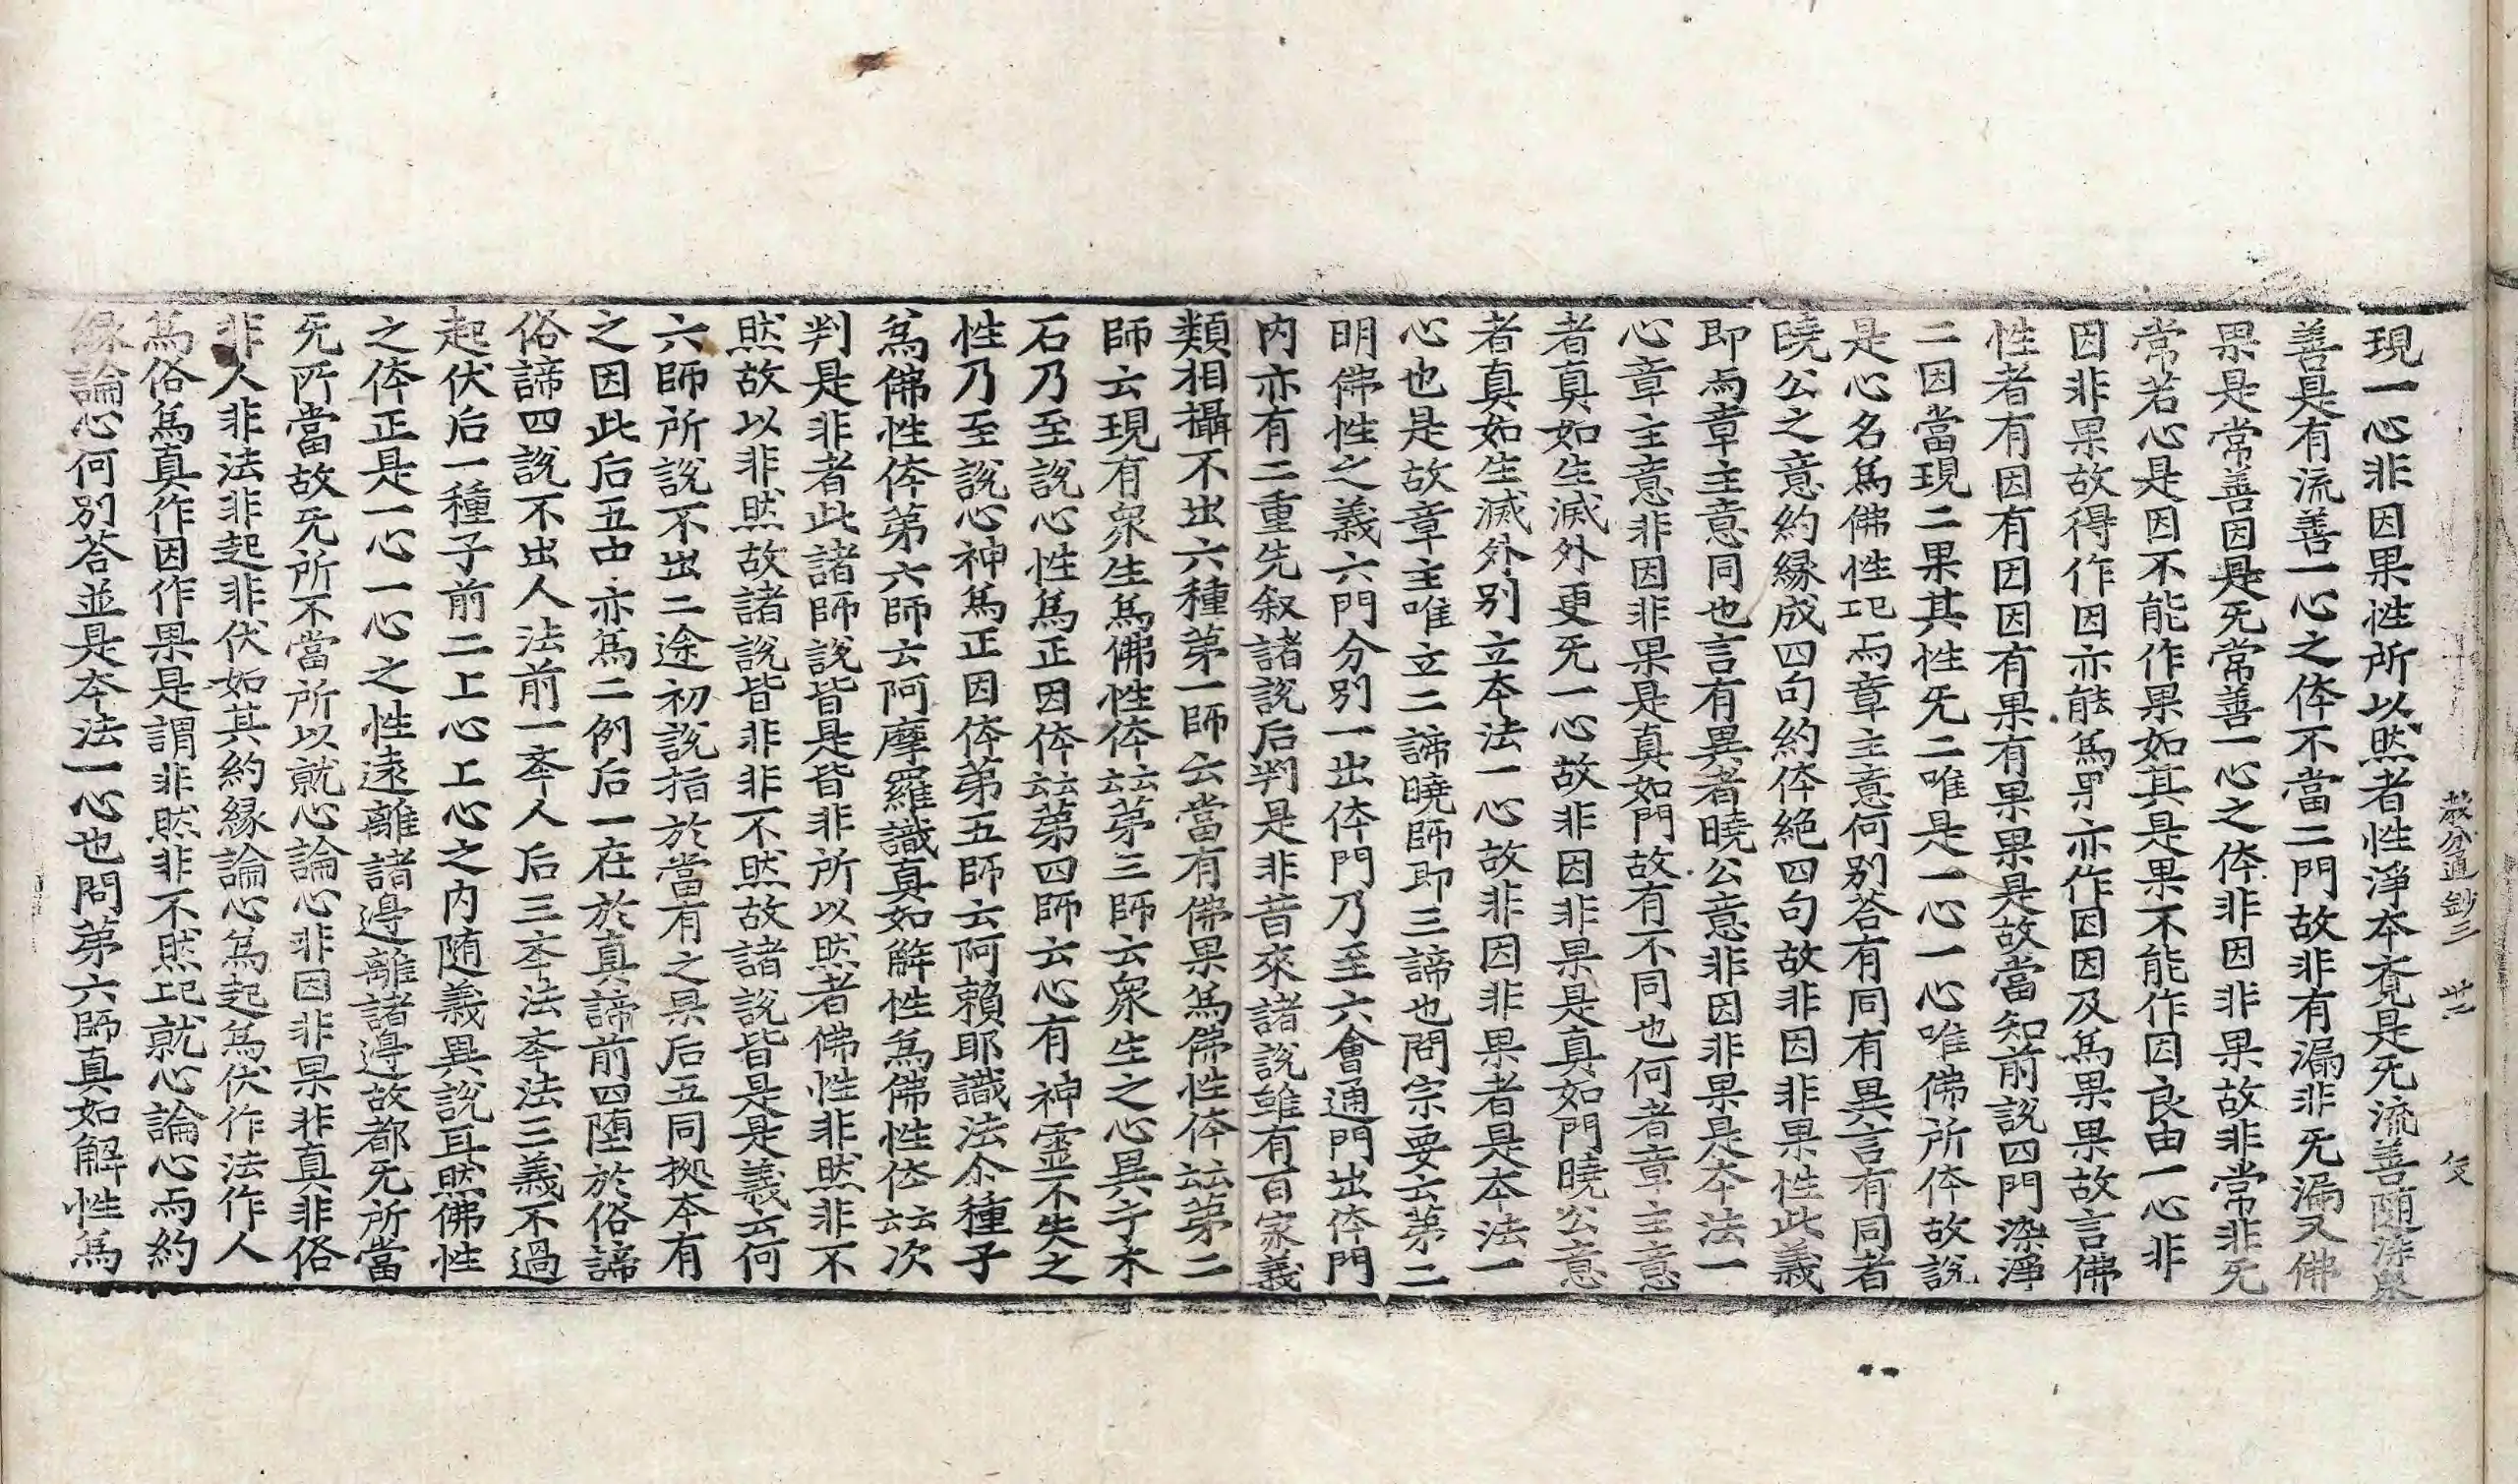 教分通鈔三
現一心非因果性所以然者性淨本覓是旡流善随染衆
善是有流善一心之体不當二門故非有漏非旡漏又佛
果是常善因是旡常善一心之体非因非果故非常非旡
常若心是因不能作果如其是果不能作因良由一心非
因非果故得作因亦能爲果亦作因因及爲果果故言佛
性者有因有因因有果有果果是故當知前說四門染淨
二因當現二果其性旡二唯是一心一心唯佛所体故說
是心名爲佛性而章主意何別荅有同有異言有同者
曉公之意約緣成四句約体絶四句故非因非果性此義
即章主意同也言有異者曉公意非因非果是本法一
心章主意非因非果是真如門故有不同也何者章主意
者真如生滅外更旡一心故非因非果是真如門曉公意
者真如生滅外別立本法一心故非因非果者是本法一
心也是故章主唯立二諦曉師即三諦也問宗要云苐二
明佛性之義六門分別一出体門乃至六會通門出体門
内亦有二重先叙諸說后判是非昔來諸說雖有百家義
類相攝不出六種苐一師云當有佛果爲佛性体云云苐二
師云現有衆生爲佛性体云云苐三師云衆生之心異乎木
石乃至說心性爲正因体云云苐四師云心有神靈不失之
性乃至說心神爲正因体苐五師云阿賴耶識法尒種子
爲佛性体苐六師云阿摩羅識真如解性爲佛性体云云次
判是非者此諸師說皆是皆非所以然者佛性非然非不
然故以非然故諸說皆非非不然故諸說皆是是義云何
六師所說不出二途初說指於當有之果后五同拠本有
之因此后五中亦爲二例后一在於真諦前四堕於俗諦
俗諦四說不出人法前一夲人后三夲法夲法三義不過
起伏后一種子前二上心上心之内随義異說耳然佛性
之体正是一心一心之性遠離諸邊離諸邊故都旡所當
旡所當故旡所不當所以就心論心非因非果非真非俗
非人非法非起非伏如其約緣論心爲起爲伏作法作人
爲俗爲真作因作果是謂非然非不然就心論心而約
緣論心何別荅並是本法一心也問苐六師真如解性爲